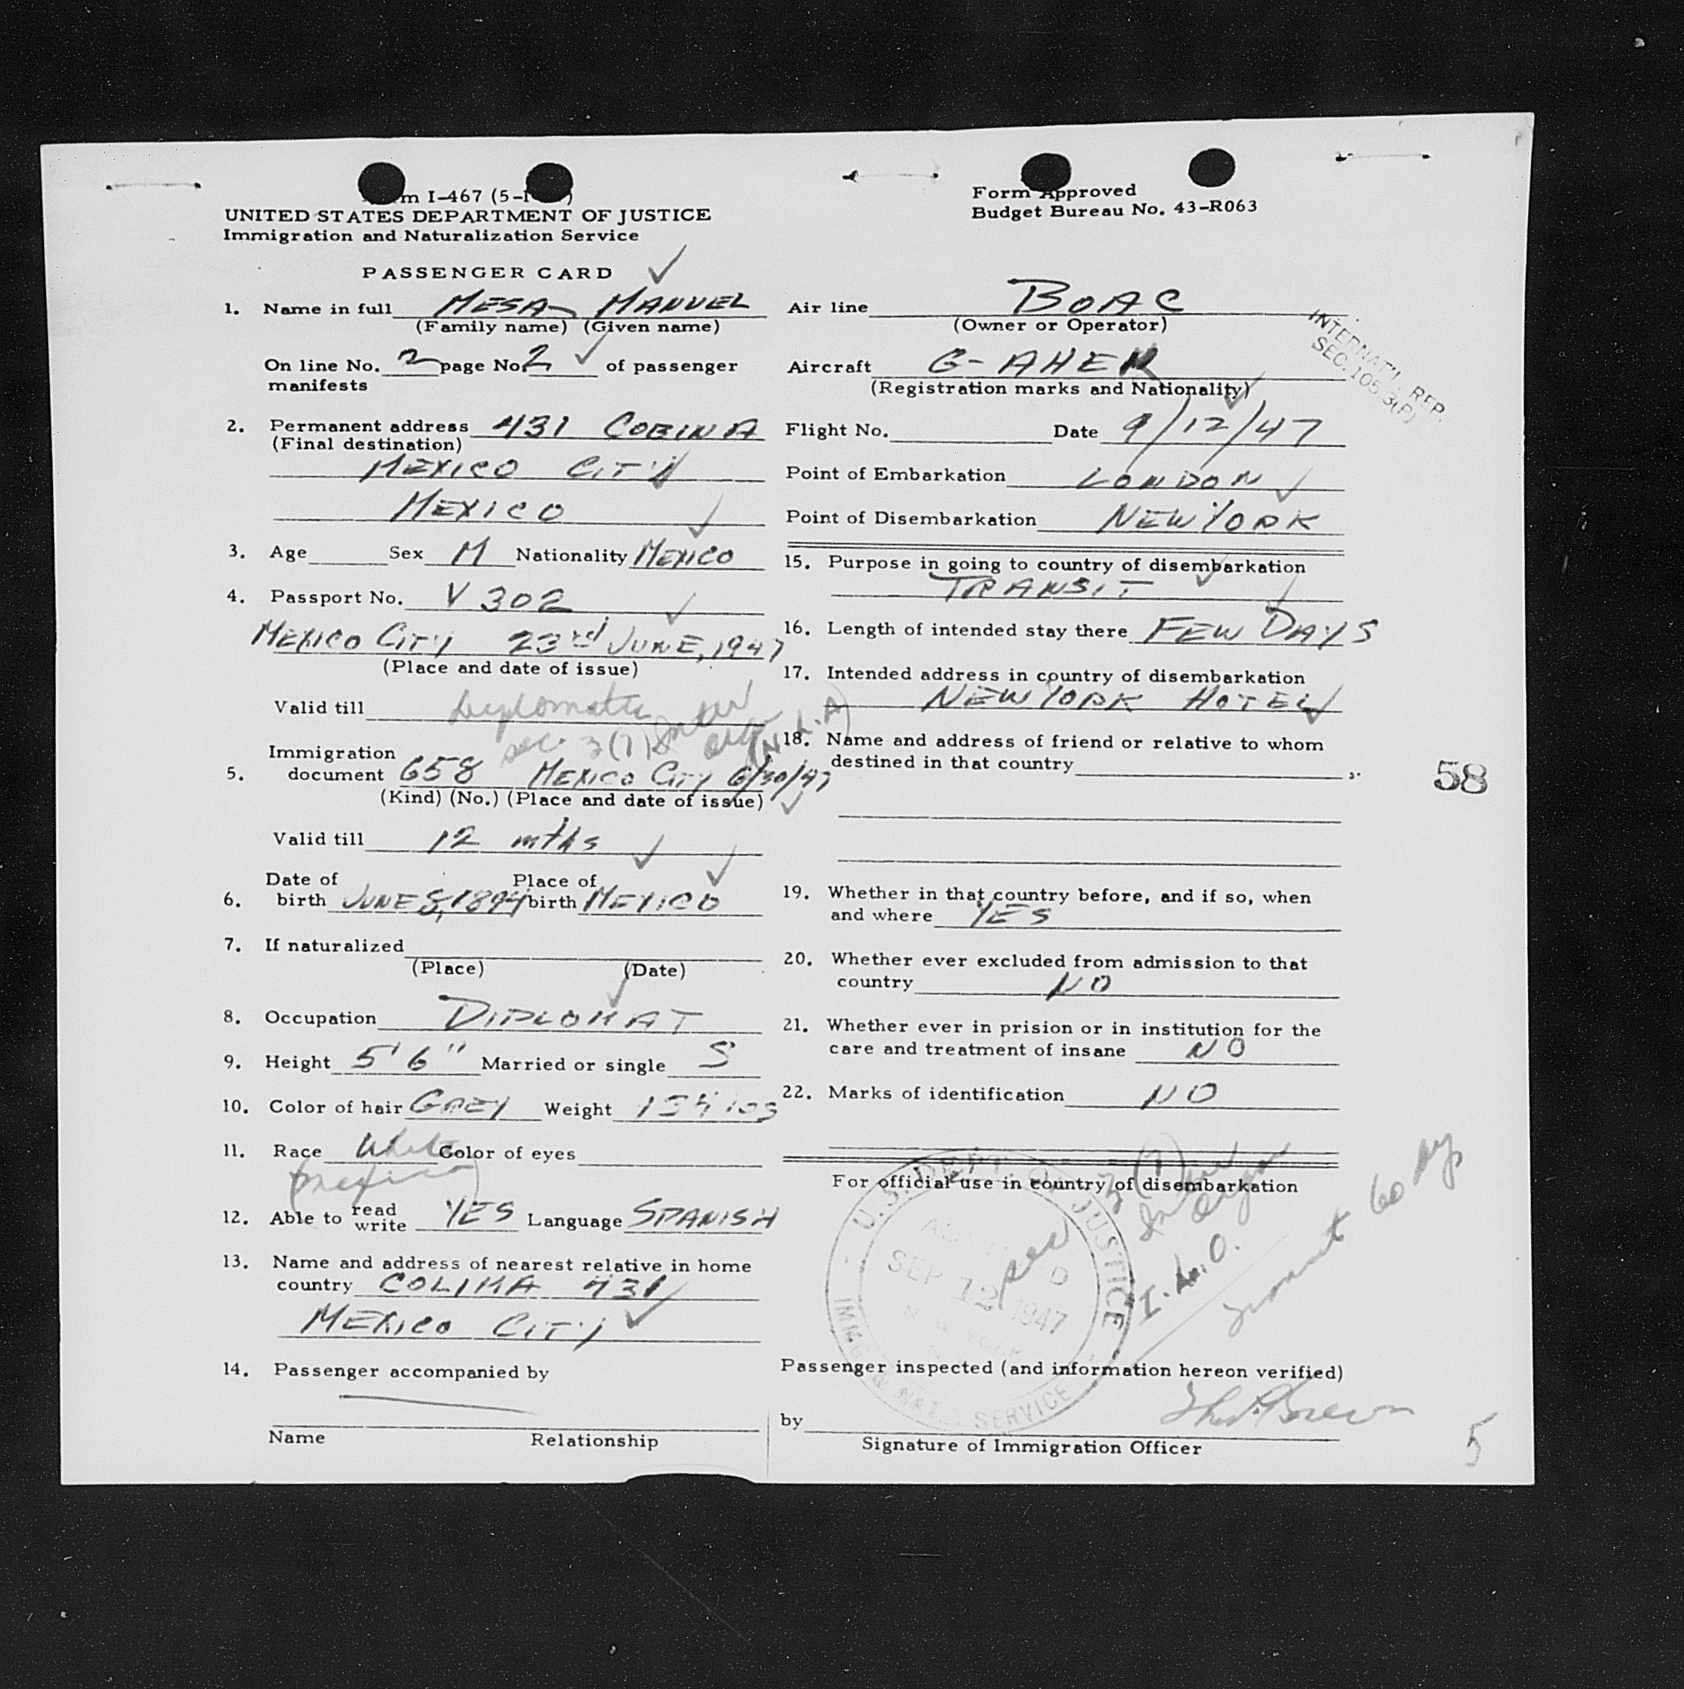 Form I-467 (5-1
UNITED STATES DEPARTMENT OF JUSTICE
Immigration and Naturalization Service
PASSENGER CARD
Form Approved
Budget Bureau No. 43-R063
1. Name in full MESA MANUEL
(Family name) (Given name)
On line No. 2 page No. 2 of passenger
manifests
2. Permanent address 431 COBINA
(Final destination)
MEXICO CITY
MEXICO
3. Age Sex M Nationality MEXICO
4. Passport No. V 302
MEXICO CITY 23rd JUNE, 1947
(Place and date of issue)
Valid till Diplomatic
sec. 3(7)
Immigration
5. document 658 MEXICO CITY 6/30/47
(Kind) (No.) (Place and date of issue)
Valid till 12 mths
Date of Place of
6. birth JUNE 8, 1894 birth MEXICO
7. If naturalized
(Place) (Date)
8. Occupation DIPLOMAT
9. Height 5'6" Married or single S
10. Color of hair GREY Weight
11. Race White Color of eyes
(Mexican)
12. Able to read write YES Language SPANISH
13. Name and address of nearest relative in home
country COLIMA 431
MEXICO CITY
14. Passenger accompanied by
Name Relationship
Air line BOAC
(Owner or Operator)
Aircraft G-AHEK
(Registration marks and Nationality)
INTERNAT'L REP.
SEC. 105.3(P)
Flight No. Date 9/12/47
Point of Embarkation LONDON
Point of Disembarkation NEW YORK
15. Purpose in going to country of disembarkation
TRANSIT
16. Length of intended stay there FEW DAYS
17. Intended address in country of disembarkation
NEW YORK HOTEL
18. Name and address of friend or relative to whom
destined in that country
58
19. Whether in that country before, and if so, when
and where YES
20. Whether ever excluded from admission to that
country NO
21. Whether ever in prision or in institution for the
care and treatment of insane NO
22. Marks of identification NO
For official use in country of disembarkation
U.S. DEPT. OF JUSTICE
SEP 12 1947
IMMIG. & NAT. SERVICE
sec 3(7)
Passenger inspected (and information hereon verified)
by
Signature of Immigration Officer
5